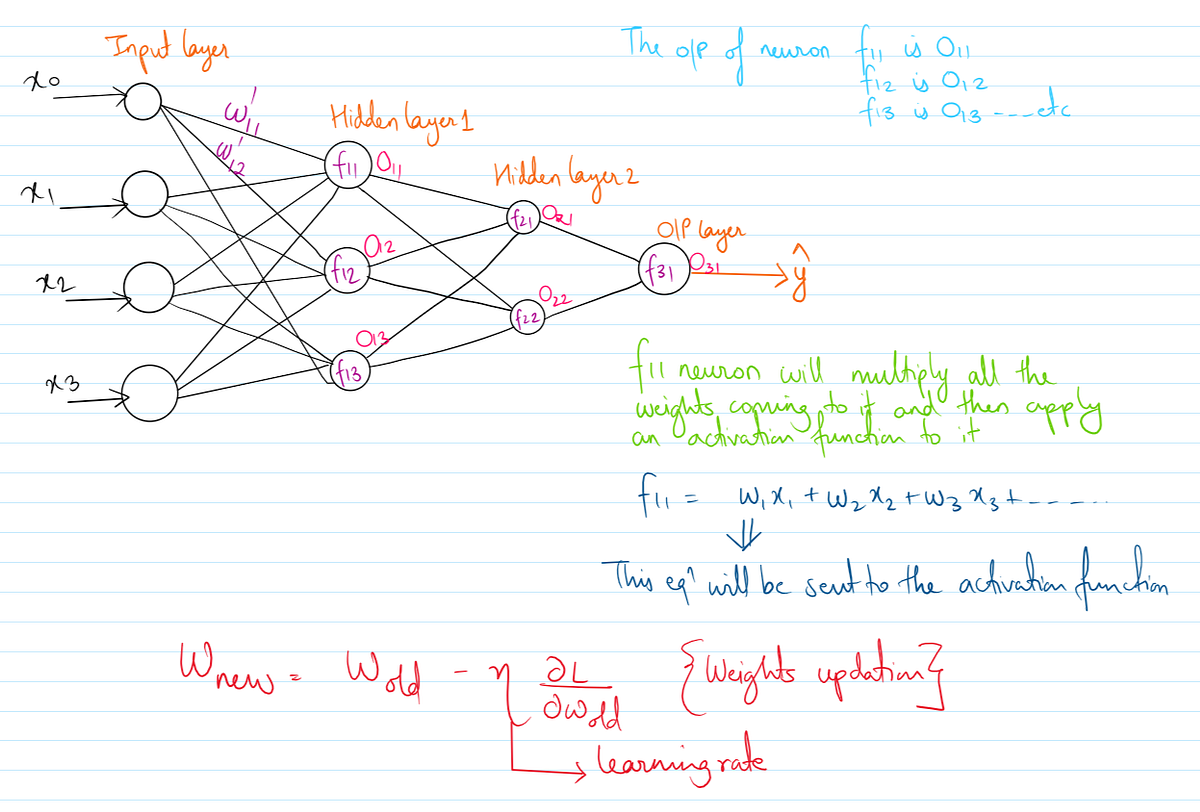 Input layer
The o/p of neuron f11 is O11
f12 is O12
f13 is O13 ---etc
x0
w'11
w'12
Hidden layer 1
f11 O11
Hidden layer 2
x1
f21 O21
O/P layer
O12
f12
f31 O31
ŷ
x2
O22
f22
O13
f13
x3
f11 neuron will multiply all the
weights coming to it and then apply
an activation function to it
f11 = w1x1 + w2x2 + w3x3 + -----
⇓
This eqn will be sent to the activation function
Wnew = Wold - η ∂L/∂wold {Weights updation}
learning rate